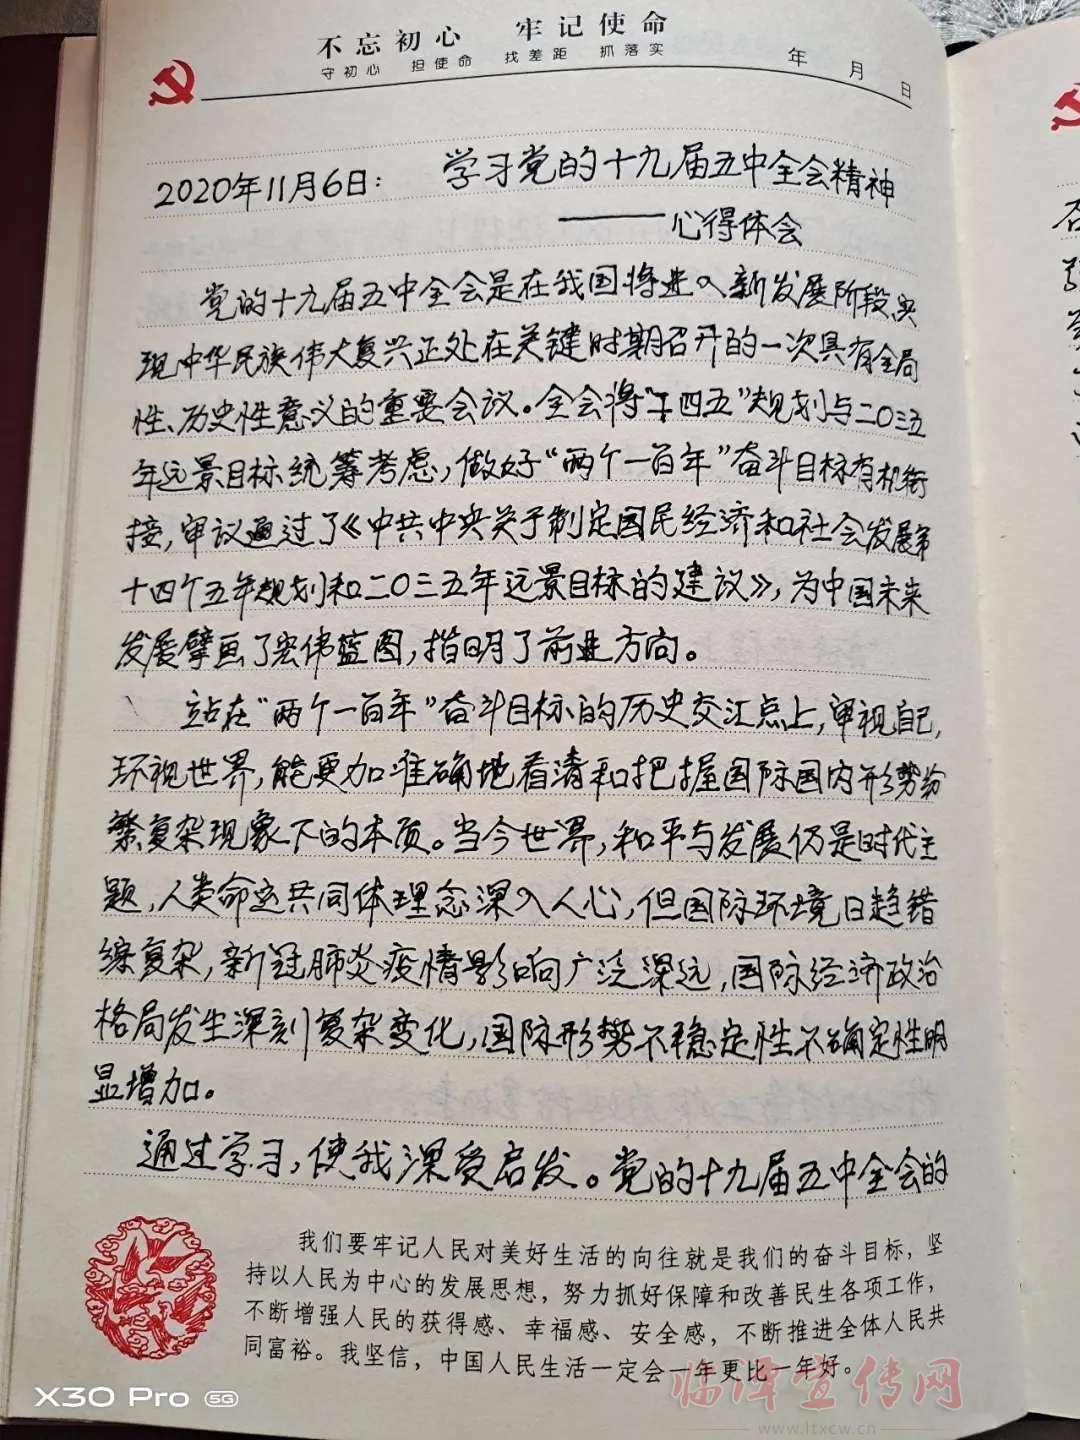 不忘初心 牢记使命
守初心 担使命 找差距 抓落实
年 月 日
2020年11月6日： 学习党的十九届五中全会精神
——心得体会
党的十九届五中全会是在我国将进入新发展阶段,实
现中华民族伟大复兴正处在关键时期召开的一次具有全局
性、历史性意义的重要会议。全会将“十四五”规划与二〇三五
年远景目标统筹考虑,做好“两个一百年”奋斗目标有机衔
接,审议通过了《中共中央关于制定国民经济和社会发展第
十四个五年规划和二〇三五年远景目标的建议》,为中国未来
发展擘画了宏伟蓝图,指明了前进方向。
站在“两个一百年”奋斗目标的历史交汇点上,审视自己,
环视世界,能更加准确地看清和把握国际国内形势纷
繁复杂现象下的本质。当今世界,和平与发展仍是时代主
题,人类命运共同体理念深入人心,但国际环境日趋错
综复杂,新冠肺炎疫情影响广泛深远,国际经济政治
格局发生深刻复杂变化,国际形势不稳定性不确定性明
显增加。
通过学习,使我深受启发。党的十九届五中全会的
我们要牢记人民对美好生活的向往就是我们的奋斗目标，坚
持以人民为中心的发展思想，努力抓好保障和改善民生各项工作，
不断增强人民的获得感、幸福感、安全感，不断推进全体人民共
同富裕。我坚信，中国人民生活一定会一年更比一年好。
X30 Pro 5G
临泽宣传网
www.ltxcw.cn